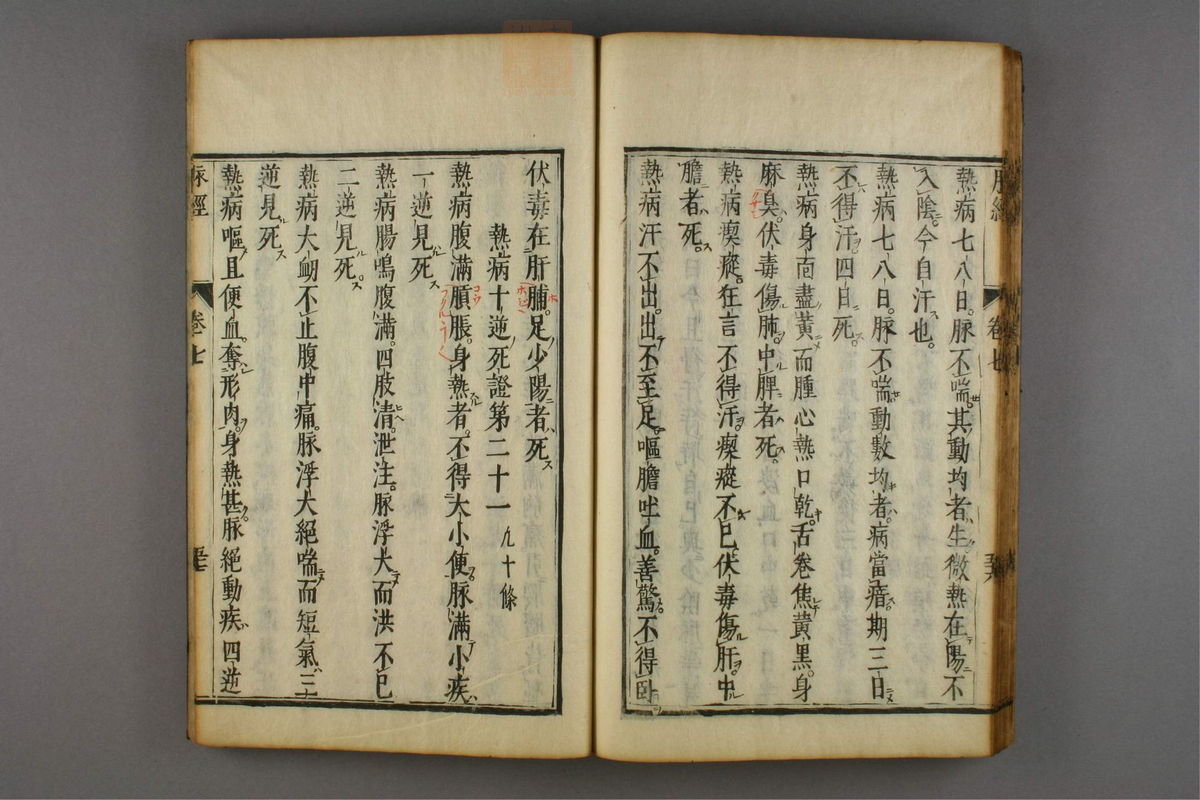 脉經 卷七
熱病七八日脉不喘其動均者生微熱在陽不
入陰今自汗也
熱病七八日脉不喘動數均者病當瘖期三日
不得汗四日死
熱病身面盡黃而腫心熱口乾舌卷焦黃黑身
麻臭伏毒傷肺中脾者死
熱病瘈瘲狂言不得汗瘈瘲不已伏毒傷肝中
膽者死
熱病汗不出出不至足嘔膽吐血善驚不得卧
伏毒在肝腑足少陽者死
熱病十逆死證第二十一 九十條
熱病腹滿䐜脹身熱者不得大小便脉滿小疾
一逆見死
熱病腸鳴腹滿四肢清泄注脉浮大而洪不已
二逆見死
熱病大衂不止腹中痛脉浮大絕喘而短氣三
逆見死
熱病嘔且便血奪形肉身熱甚脉絕動疾四逆
脉經 卷七